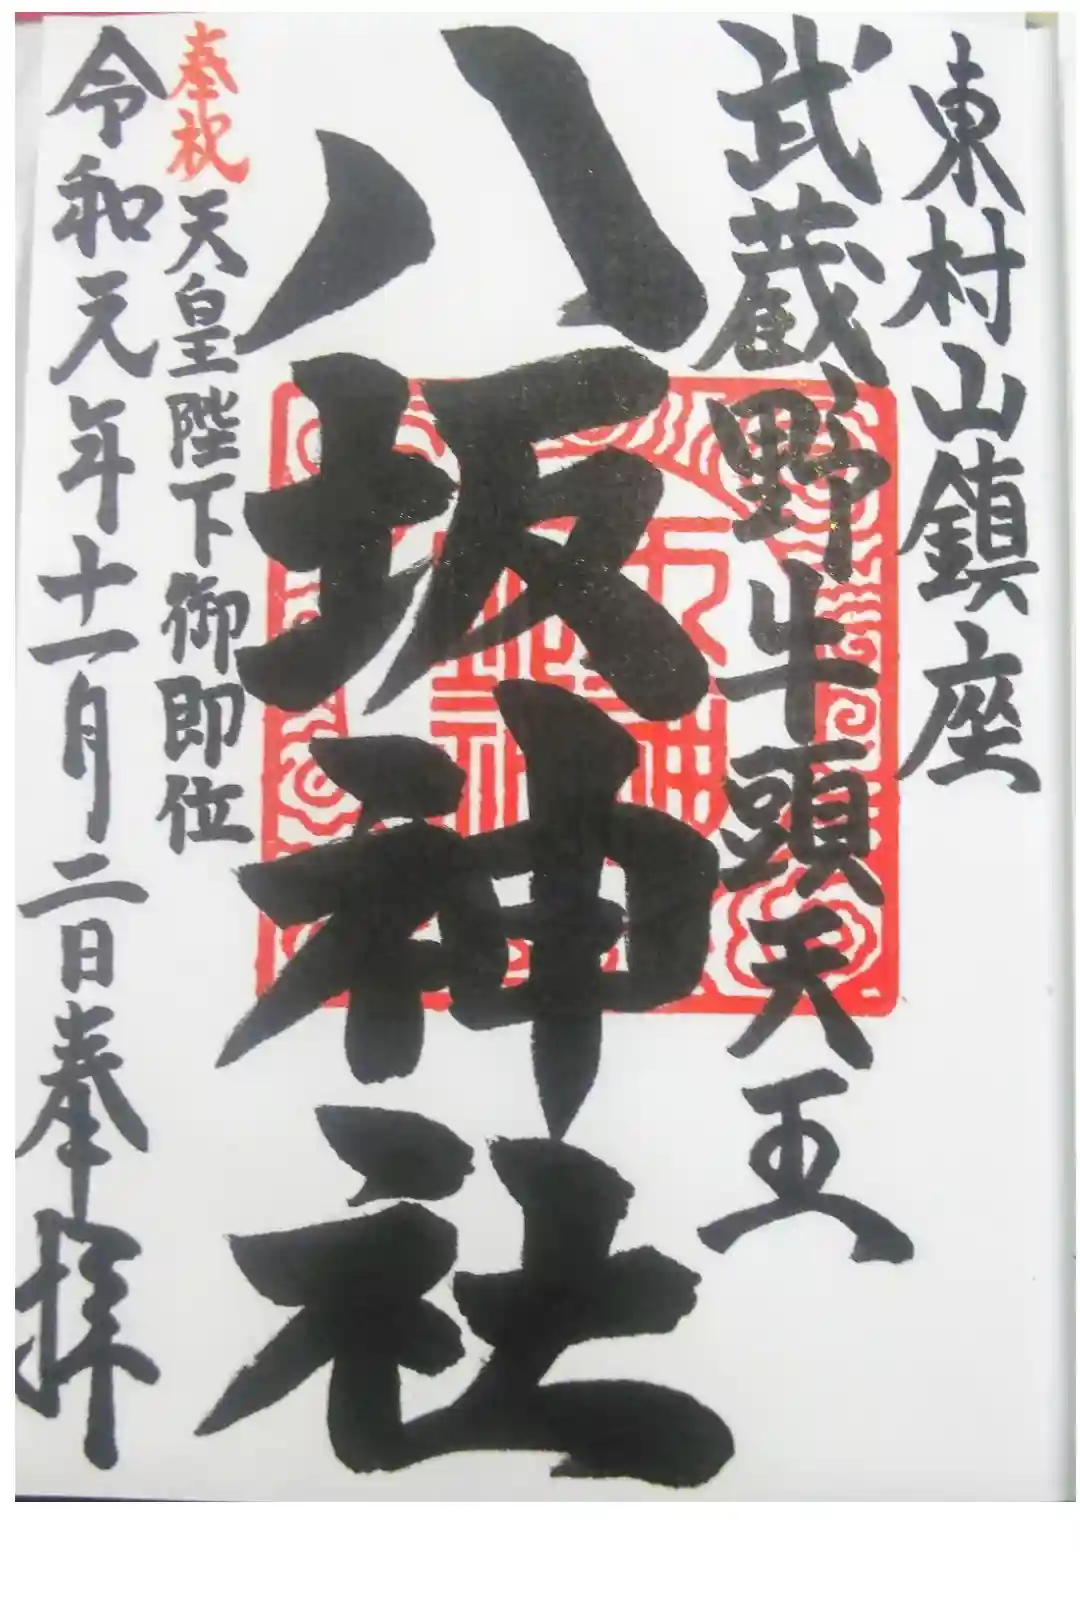 東村山鎮座
武蔵野牛頭天王
八坂神社
奉祝 天皇陛下御即位
令和元年十一月二日奉拝